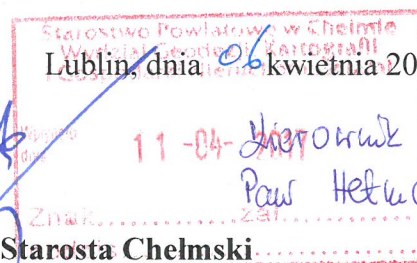 Starostwo Powiatowe w Chełmie
Wydział Geodezji, Kartografii
Lublin, dnia 06 kwietnia 20
Wpłynęło
dnia
11 -04- 2017
Kierownik
Znak
zał.
Starosta Chełmski